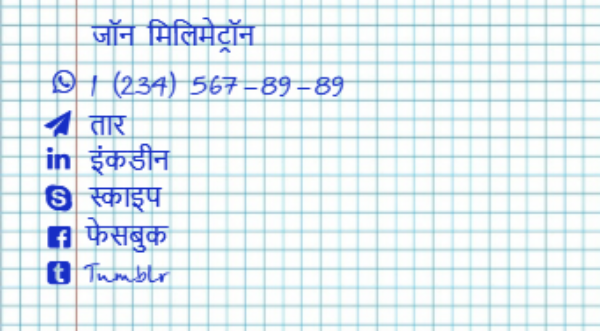 जॉन मिलिमेट्रॉन
1 (234) 567-89-89
तार
in इंकडीन
S स्काइप
f फेसबुक
t Tumblr